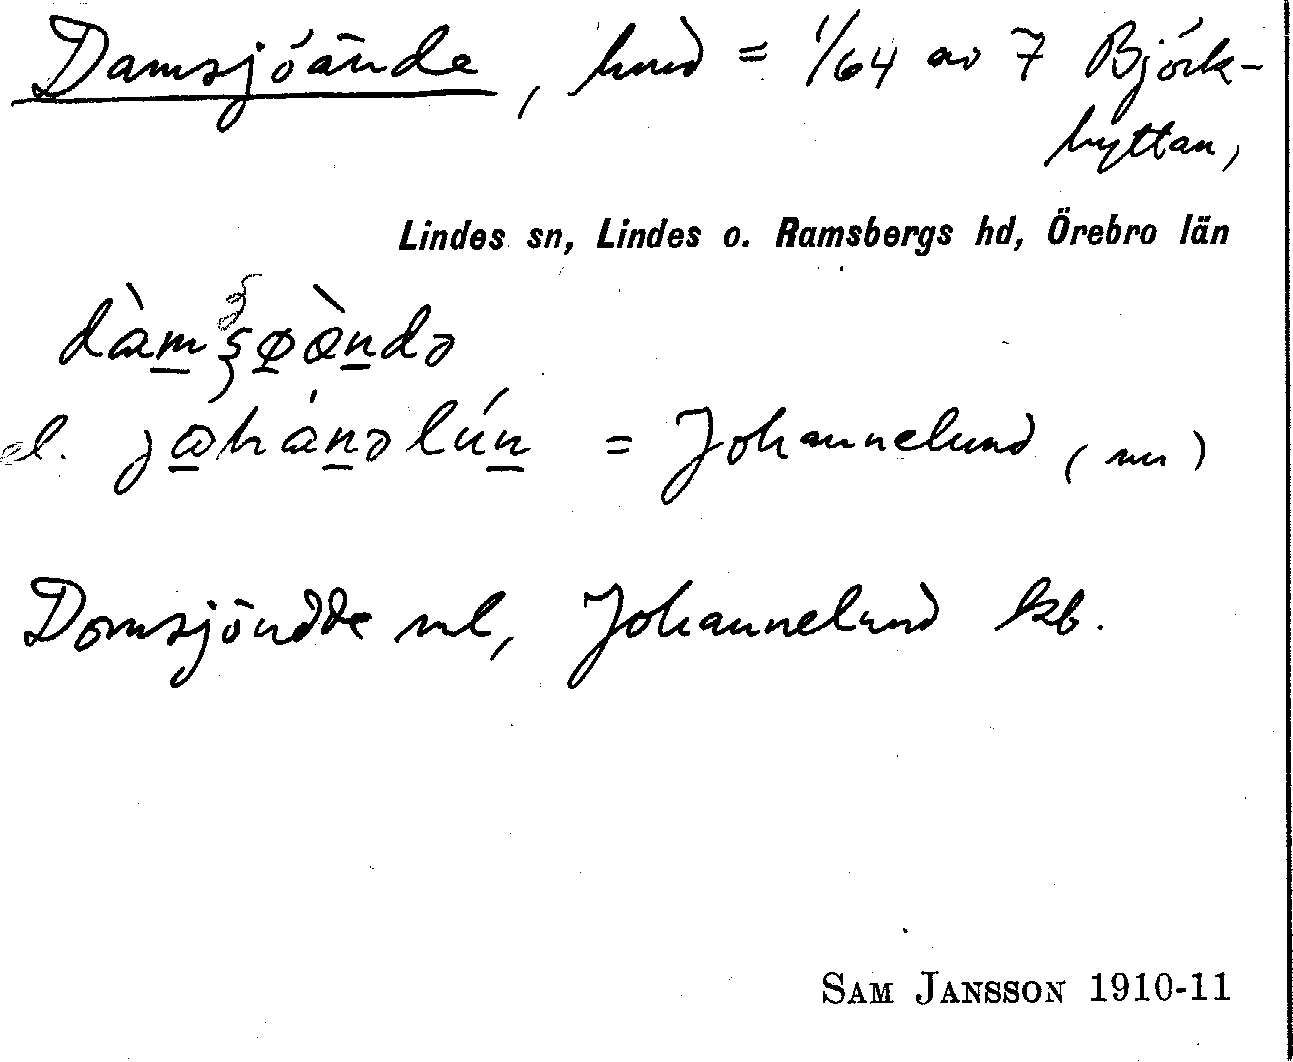 Damsjöände, hmd = 1/64 av 7 Björk-
hyttan,
Lindes sn, Lindes o. Ramsbergs hd, Örebro län
dàm̲ʂø̲æ̀n̲də
el. jω̲hàn̲əlún̲ = Johannelund (nu)
Domsjöndde ml, Johannelund kb.
SAM JANSSON 1910-11